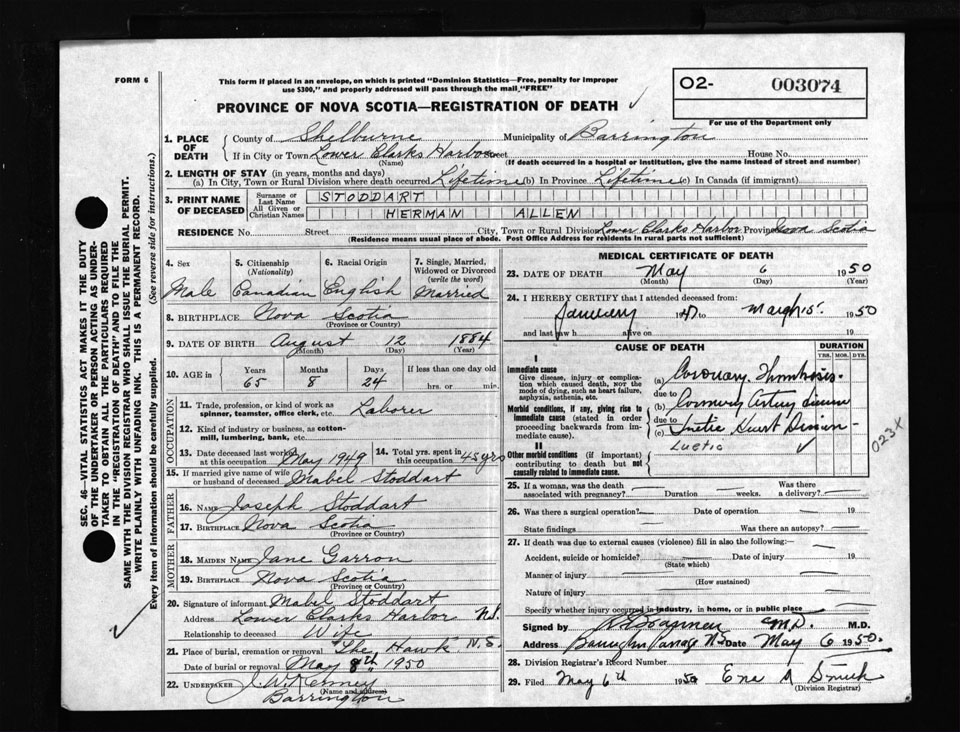 FORM 6
This form if placed in an envelope, on which is printed "Dominion Statistics—Free, penalty for improper
use $300," and properly addressed will pass through the mail "FREE"
O2- 003074
PROVINCE OF NOVA SCOTIA—REGISTRATION OF DEATH
For use of the Department only
1. PLACE OF DEATH
County of Shelburne Municipality of Barrington
If in City or Town Lower Clarks Harbor Street House No.
(Name) (If death occurred in a hospital or institution, give the name instead of street and number)
2. LENGTH OF STAY (in years, months and days)
(a) In City, Town or Rural Division where death occurred Lifetime (b) In Province Lifetime (c) In Canada (if immigrant)
3. PRINT NAME OF DECEASED
Surname or Last Name STODDART
All Given or Christian Names HERMAN ALLEN
RESIDENCE No. Street City, Town or Rural Division Lower Clarks Harbor Province Nova Scotia
(Residence means usual place of abode. Post Office Address for residents in rural parts not sufficient)
4. Sex
Male
5. Citizenship
(Nationality)
Canadian
6. Racial Origin
English
7. Single, Married,
Widowed or Divorced
(write the word)
Married
8. BIRTHPLACE Nova Scotia
(Province or Country)
9. DATE OF BIRTH August 12 1884
(Month) (Day) (Year)
10. AGE in
Years Months Days If less than one day old
65 8 24 hrs. or min.
OCCUPATION
11. Trade, profession, or kind of work as
spinner, teamster, office clerk, etc. Laborer
12. Kind of industry or business, as cotton-
mill, lumbering, bank, etc.
13. Date deceased last worked
at this occupation May 1949
14. Total yrs. spent in
this occupation 45 yrs
15. If married give name of wife
or husband of deceased Mabel Stoddart
FATHER
16. NAME Joseph Stoddart
17. BIRTHPLACE Nova Scotia
(Province or Country)
MOTHER
18. MAIDEN NAME Jane Garron
19. BIRTHPLACE Nova Scotia
(Province or Country)
20. Signature of informant Mabel Stoddart
Address Lower Clarks Harbor N.S.
Relationship to deceased Wife
21. Place of burial, cremation or removal The Hawk N.S.
Date of burial or removal May 8th 1950
22. UNDERTAKER
(Name and address)
Barrington
MEDICAL CERTIFICATE OF DEATH
23. DATE OF DEATH May 6 1950
(Month) (Day) (Year)
24. I HEREBY CERTIFY that I attended deceased from:
January 19 to March 15 1950
and last saw h alive on 19
CAUSE OF DEATH
DURATION
YRS. MOS. DYS.
I
Immediate cause
Give disease, injury or complica-
tion which caused death, not the
mode of dying, such as heart failure,
asphyxia, asthenia, etc.
(a) Coronary Thrombosis
due to
Morbid conditions, if any, giving rise to
immediate cause (stated in order
proceeding backwards from im-
mediate cause).
(b) Coronary Artery disease
due to
(c) Luetic Heart Disease
LUETIC
023X
II
Other morbid conditions (if important)
contributing to death but not
causally related to immediate cause.
25. If a woman, was the death
associated with pregnancy? Duration weeks. Was there
a delivery?
26. Was there a surgical operation? Date of operation 19
State findings Was there an autopsy?
27. If death was due to external causes (violence) fill in also the following:
Accident, suicide or homicide? Date of injury 19
(State which)
Manner of injury
(How sustained)
Nature of injury
Specify whether injury occurred in industry, in home, or in public place
Signed by M.D. M.D.
Address Barrington Passage NS Date May 6 1950.
28. Division Registrar's Record Number
29. Filed May 6th 1950
(Division Registrar)
SEC. 46—VITAL STATISTICS ACT MAKES IT THE DUTY
OF THE UNDERTAKER OR PERSON ACTING AS UNDER-
TAKER TO OBTAIN ALL THE PARTICULARS REQUIRED
IN THE "REGISTRATION OF DEATH" AND TO FILE THE
SAME WITH THE DIVISION REGISTRAR WHO SHALL ISSUE THE BURIAL PERMIT.
WRITE PLAINLY WITH UNFADING INK. THIS IS A PERMANENT RECORD.
Every item of information should be carefully supplied. (See reverse side for instructions.)